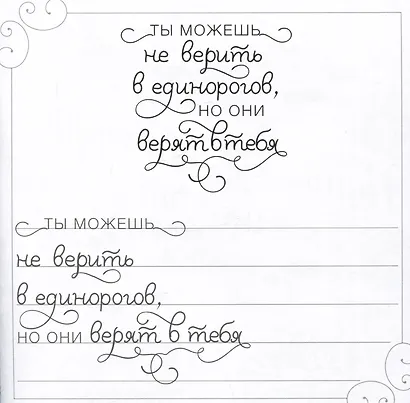 ТЫ МОЖЕШЬ
не верить
в единорогов,
НО ОНИ
верят в тебя
ТЫ МОЖЕШЬ
не верить
в единорогов,
НО ОНИ верят в тебя